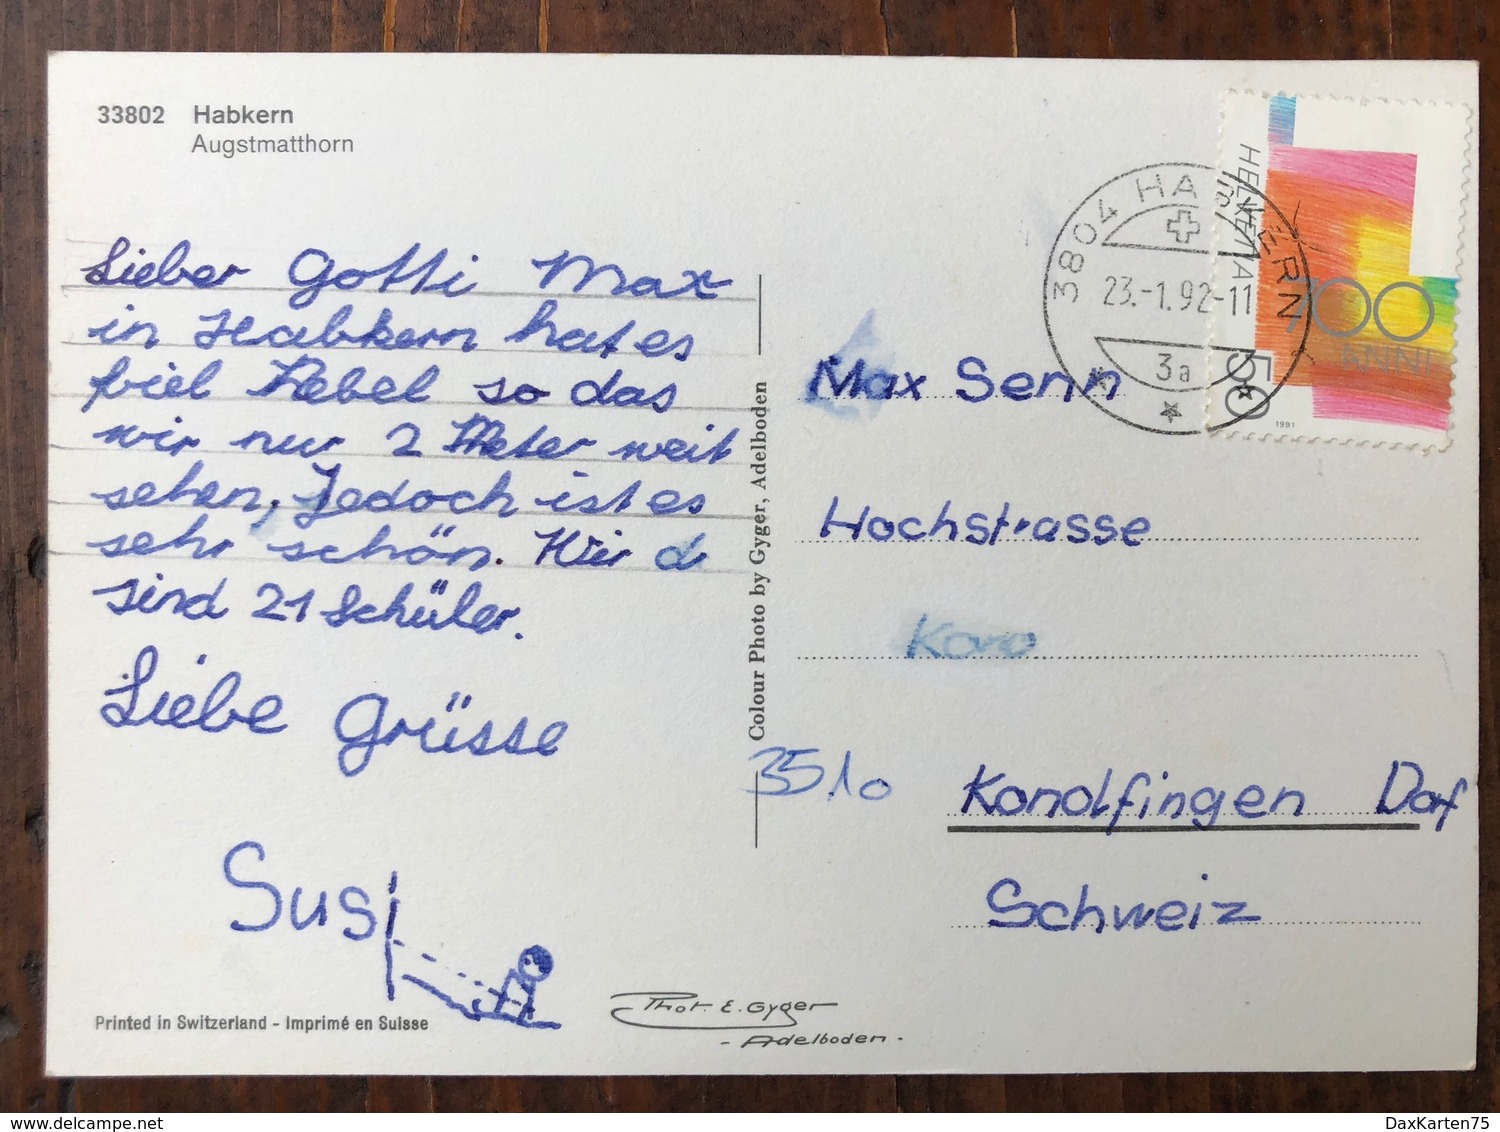 33802 Habkern
Augstmatthorn
Lieber Gotti Max
in Habkern hat es
viel Nebel so das
wir nur 2 Meter weit
sehen. Jedoch ist es
sehr schön. Wir
sind 21 Schüler.
Liebe Grüsse
Susi
Printed in Switzerland - Imprimé en Suisse
Colour Photo by Gyger, Adelboden
Phot. E. Gyger
- Adelboden -
3804 HABKERN
23.-1.92-11
3a
HELVETIA
700
ANNI
50
1991
Max Senn
Hochstrasse
Kono
3510 Konolfingen Dorf
Schweiz
DaxKarten75